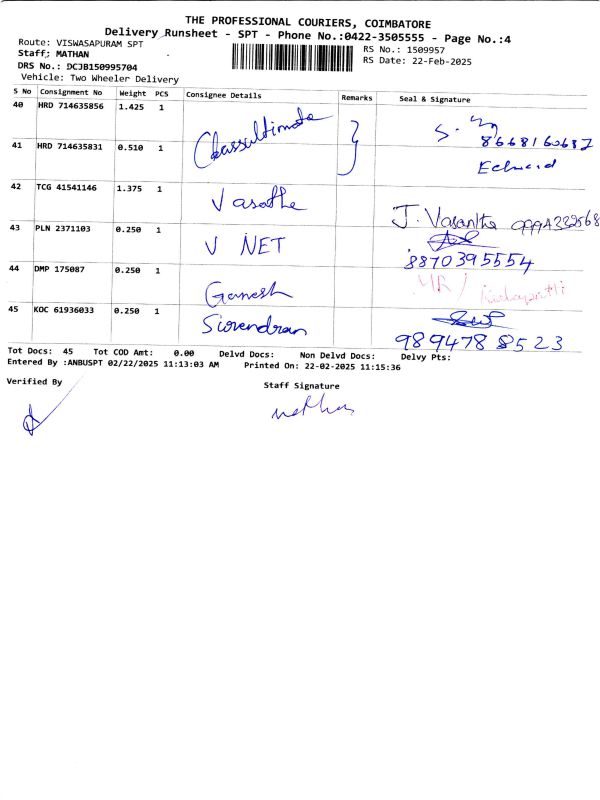 THE PROFESSIONAL COURIERS, COIMBATORE
Delivery Runsheet - SPT - Phone No.:0422-3505555 - Page No.:4
Route: VISWASAPURAM SPT
RS No.: 1509957
Staff: MATHAN
RS Date: 22-Feb-2025
DRS No.: DCJB150995704
Vehicle: Two Wheeler Delivery
S No Consignment No Weight PCS Consignee Details Remarks Seal & Signature
40 HRD 714635856 1.425 1
41 HRD 714635831 0.510 1
42 TCG 41541146 1.375 1 Vasatha J. Vasantha
43 PLN 2371103 0.250 1 V NET 8870395554
44 DMP 175087 0.250 1 Ganesh
45 KOC 61936033 0.250 1 9894788523
Tot Docs: 45 Tot COD Amt: 0.00 Delvd Docs: Non Delvd Docs: Delvy Pts:
Entered By :ANBUSPT 02/22/2025 11:13:03 AM Printed On: 22-02-2025 11:15:36
Verified By
Staff Signature